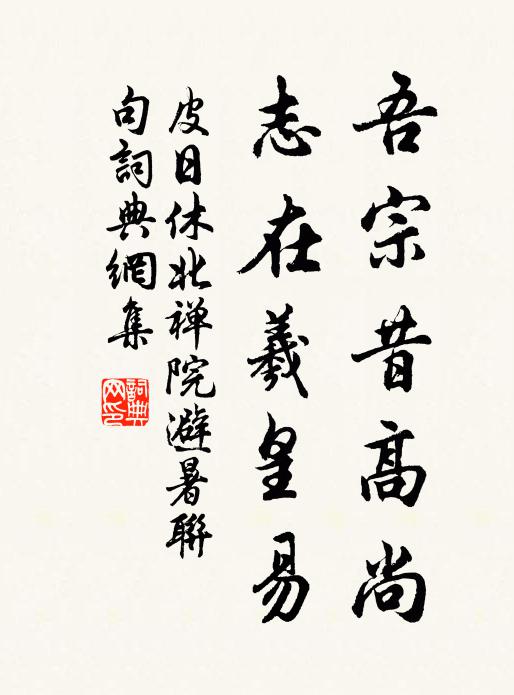 吾宗昔高尚
志在羲皇易
皮日休北禅院避暑聯
句詞典網集
詞典
网印